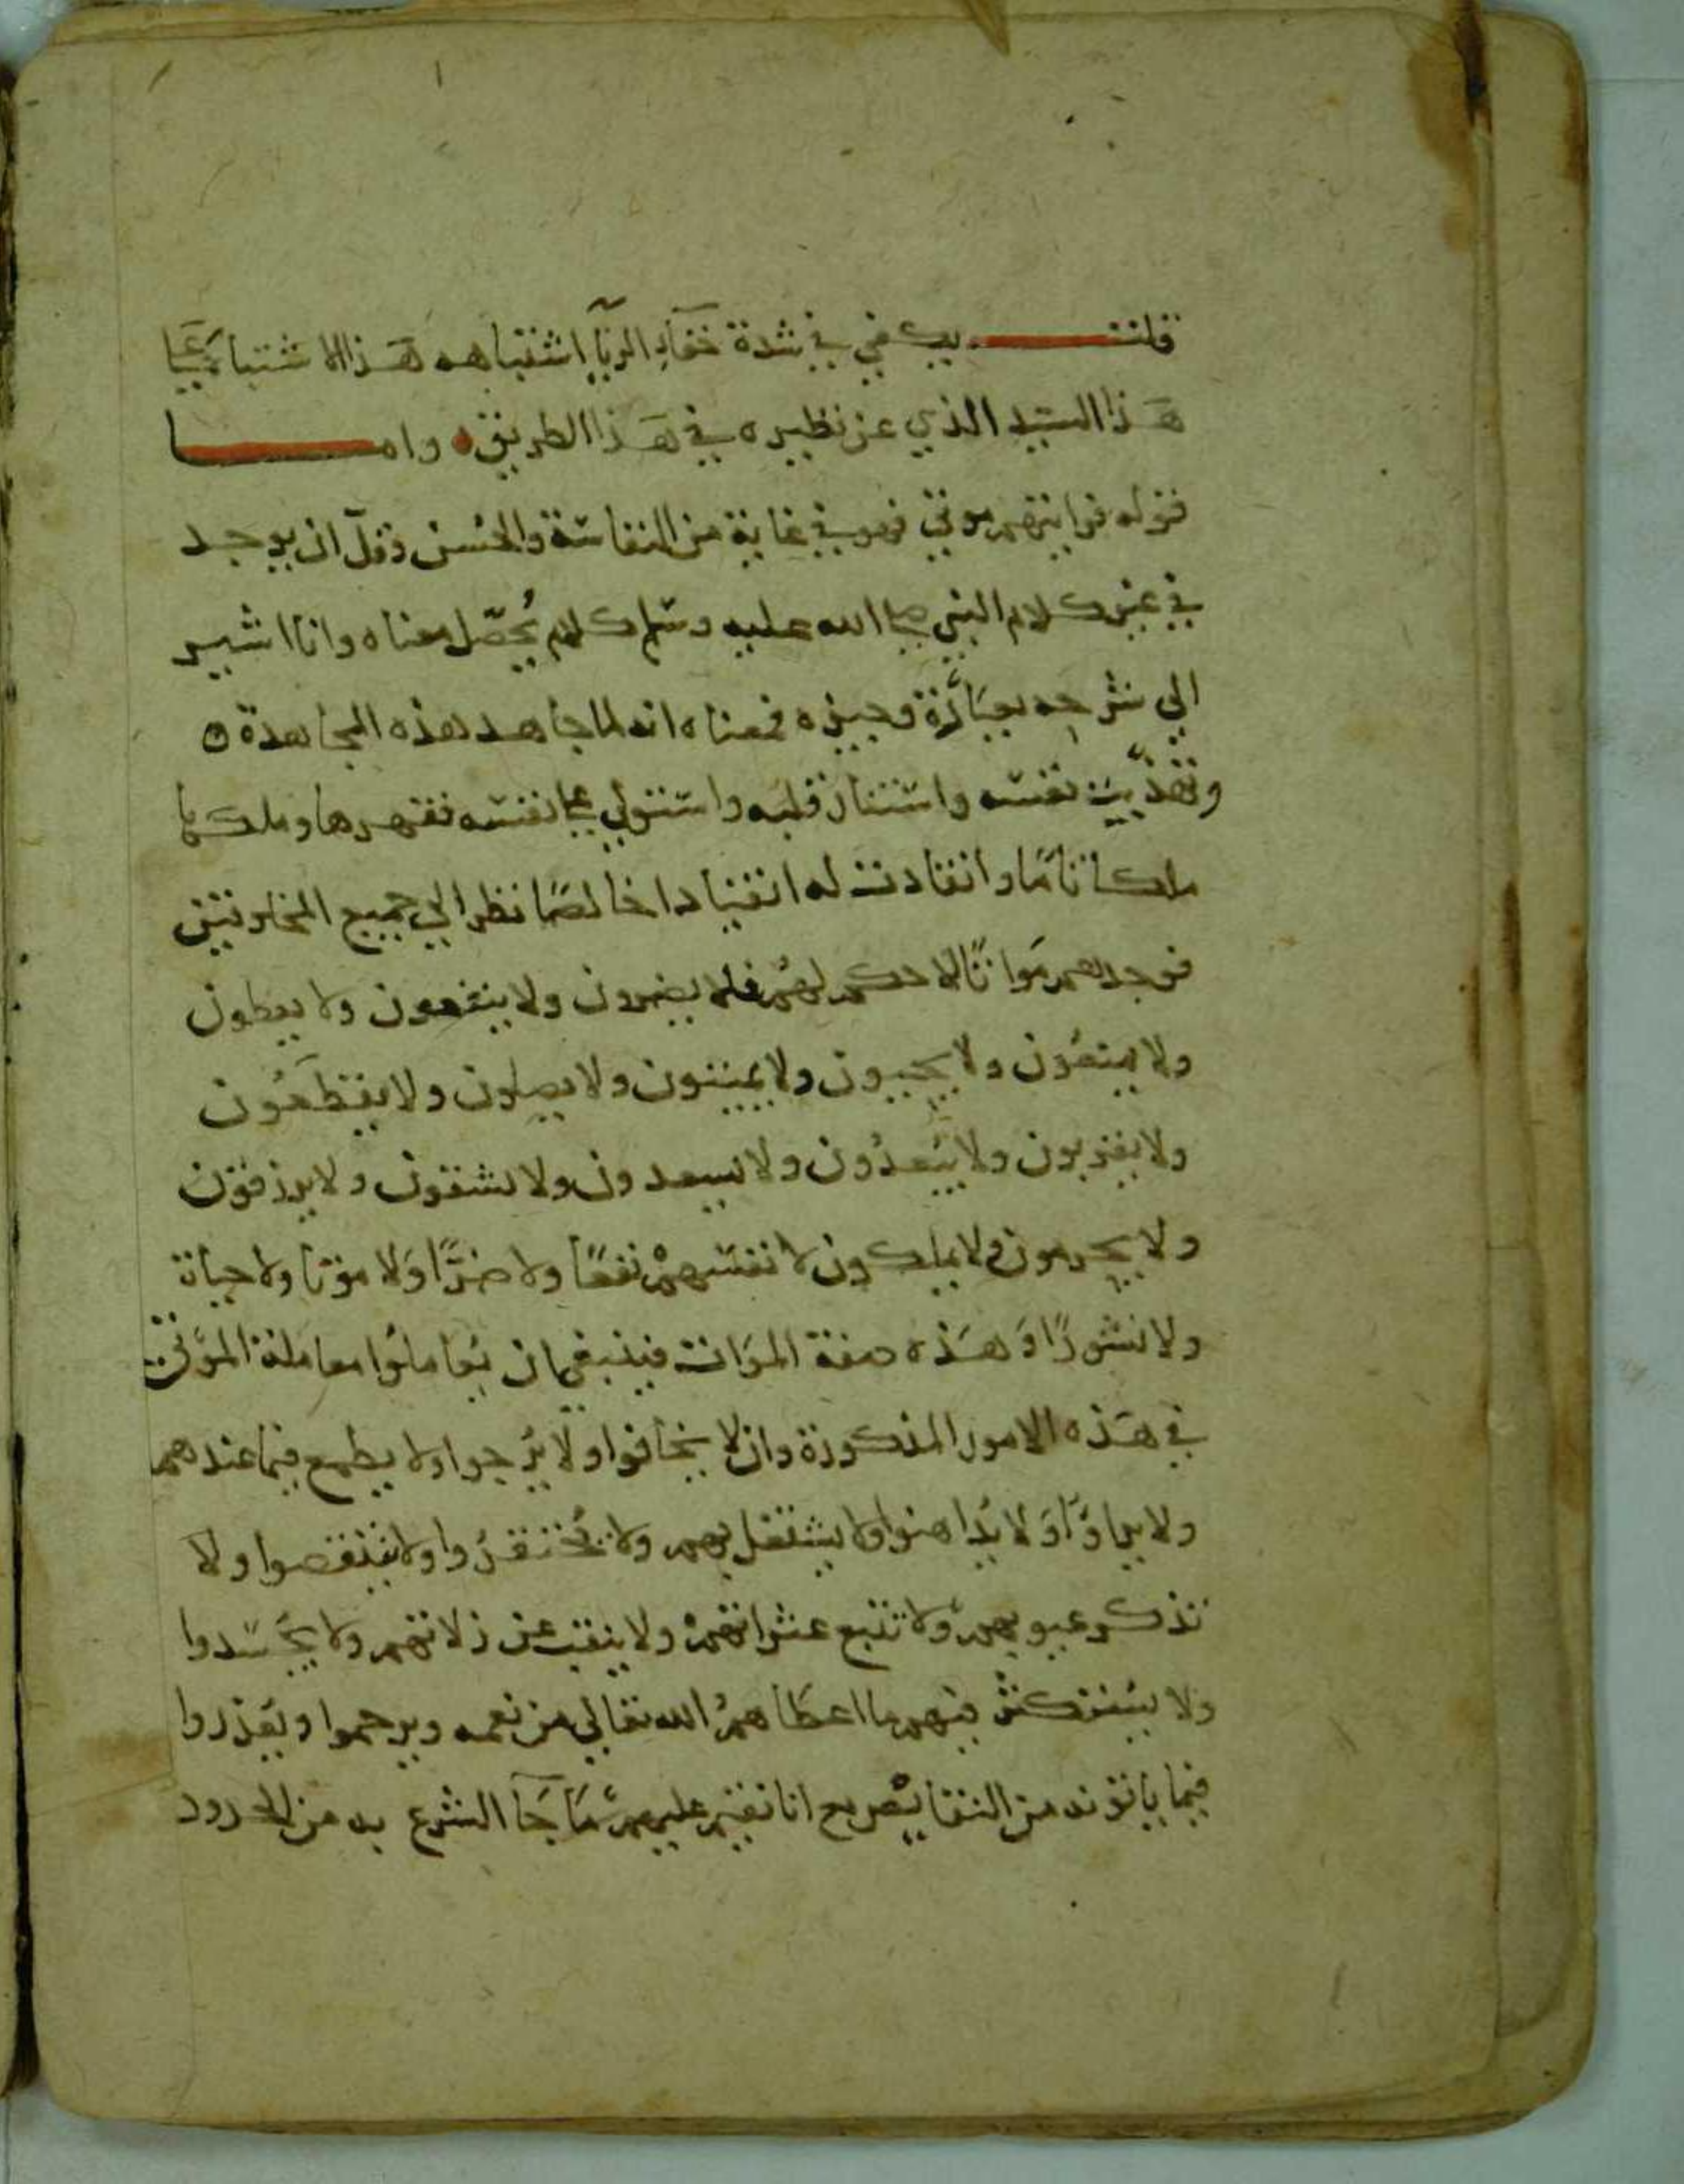 قلت يكفي في شدة خفاء الريآ اشتباهه هذا الاشتباه علي
هذا السيد الذي عز نظيره في هذا الطريق واما
قوله فرايتهم موتي فهو في غاية من النفاسة والحسن وقل ان يوجد
في غير كلام النبي صلى الله عليه وسلم كلام يحصل معناه وانا اشير
الي شرحه بعبارة وجيزه فمعناه انه لما جاهد هذه المجاهدة
وتهذبت نفسه واستنار قلبه واستولي علي نفسه فقهرها وملكها
ملكا تاما وانقادت له انقيادا خالصا نظر الي جميع المخلوقين
فوجدهم مواتا لا حكم لهم فلا يضرون ولا ينفعون ولا يعطون
ولا يمنعون ولا يحييون ولا يميتون ولا يصلون ولا يقطعون
ولا يقربون ولا يبعدون ولا يسعدون ولا يشقون ولا يرزقون
ولا يحرمون ولا يملكون لانفسهم نفعا ولا ضرا ولا موتا ولا حياة
ولا نشورا وهذه صفة الموات فينبغي ان يعاملوا معاملة الموتي
في هذه الامور المذكورة وان لا يخافوا ولا يرجوا ولا يطمع فيما عندهم
ولا يراوا ولا يداهنوا ولا يشتغل بهم ولا يحتقروا ولا ينتقصوا ولا
تذكر عيوبهم ولا تتبع عثراتهم ولا ينقب عن زلاتهم ولا يحسدوا
ولا يستكثر فيهم ما اعطاهم الله تعالي من نعمه ويرحموا ويعذروا
فيما ياتونه من النقايص مع انا نقيم عليهم ما جآ الشرع به من الحدود